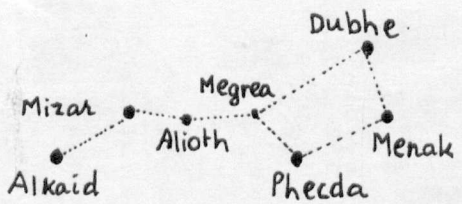 Dubhe
Megrea
Mizar
Alioth
Menak
Alkaid
Phecda